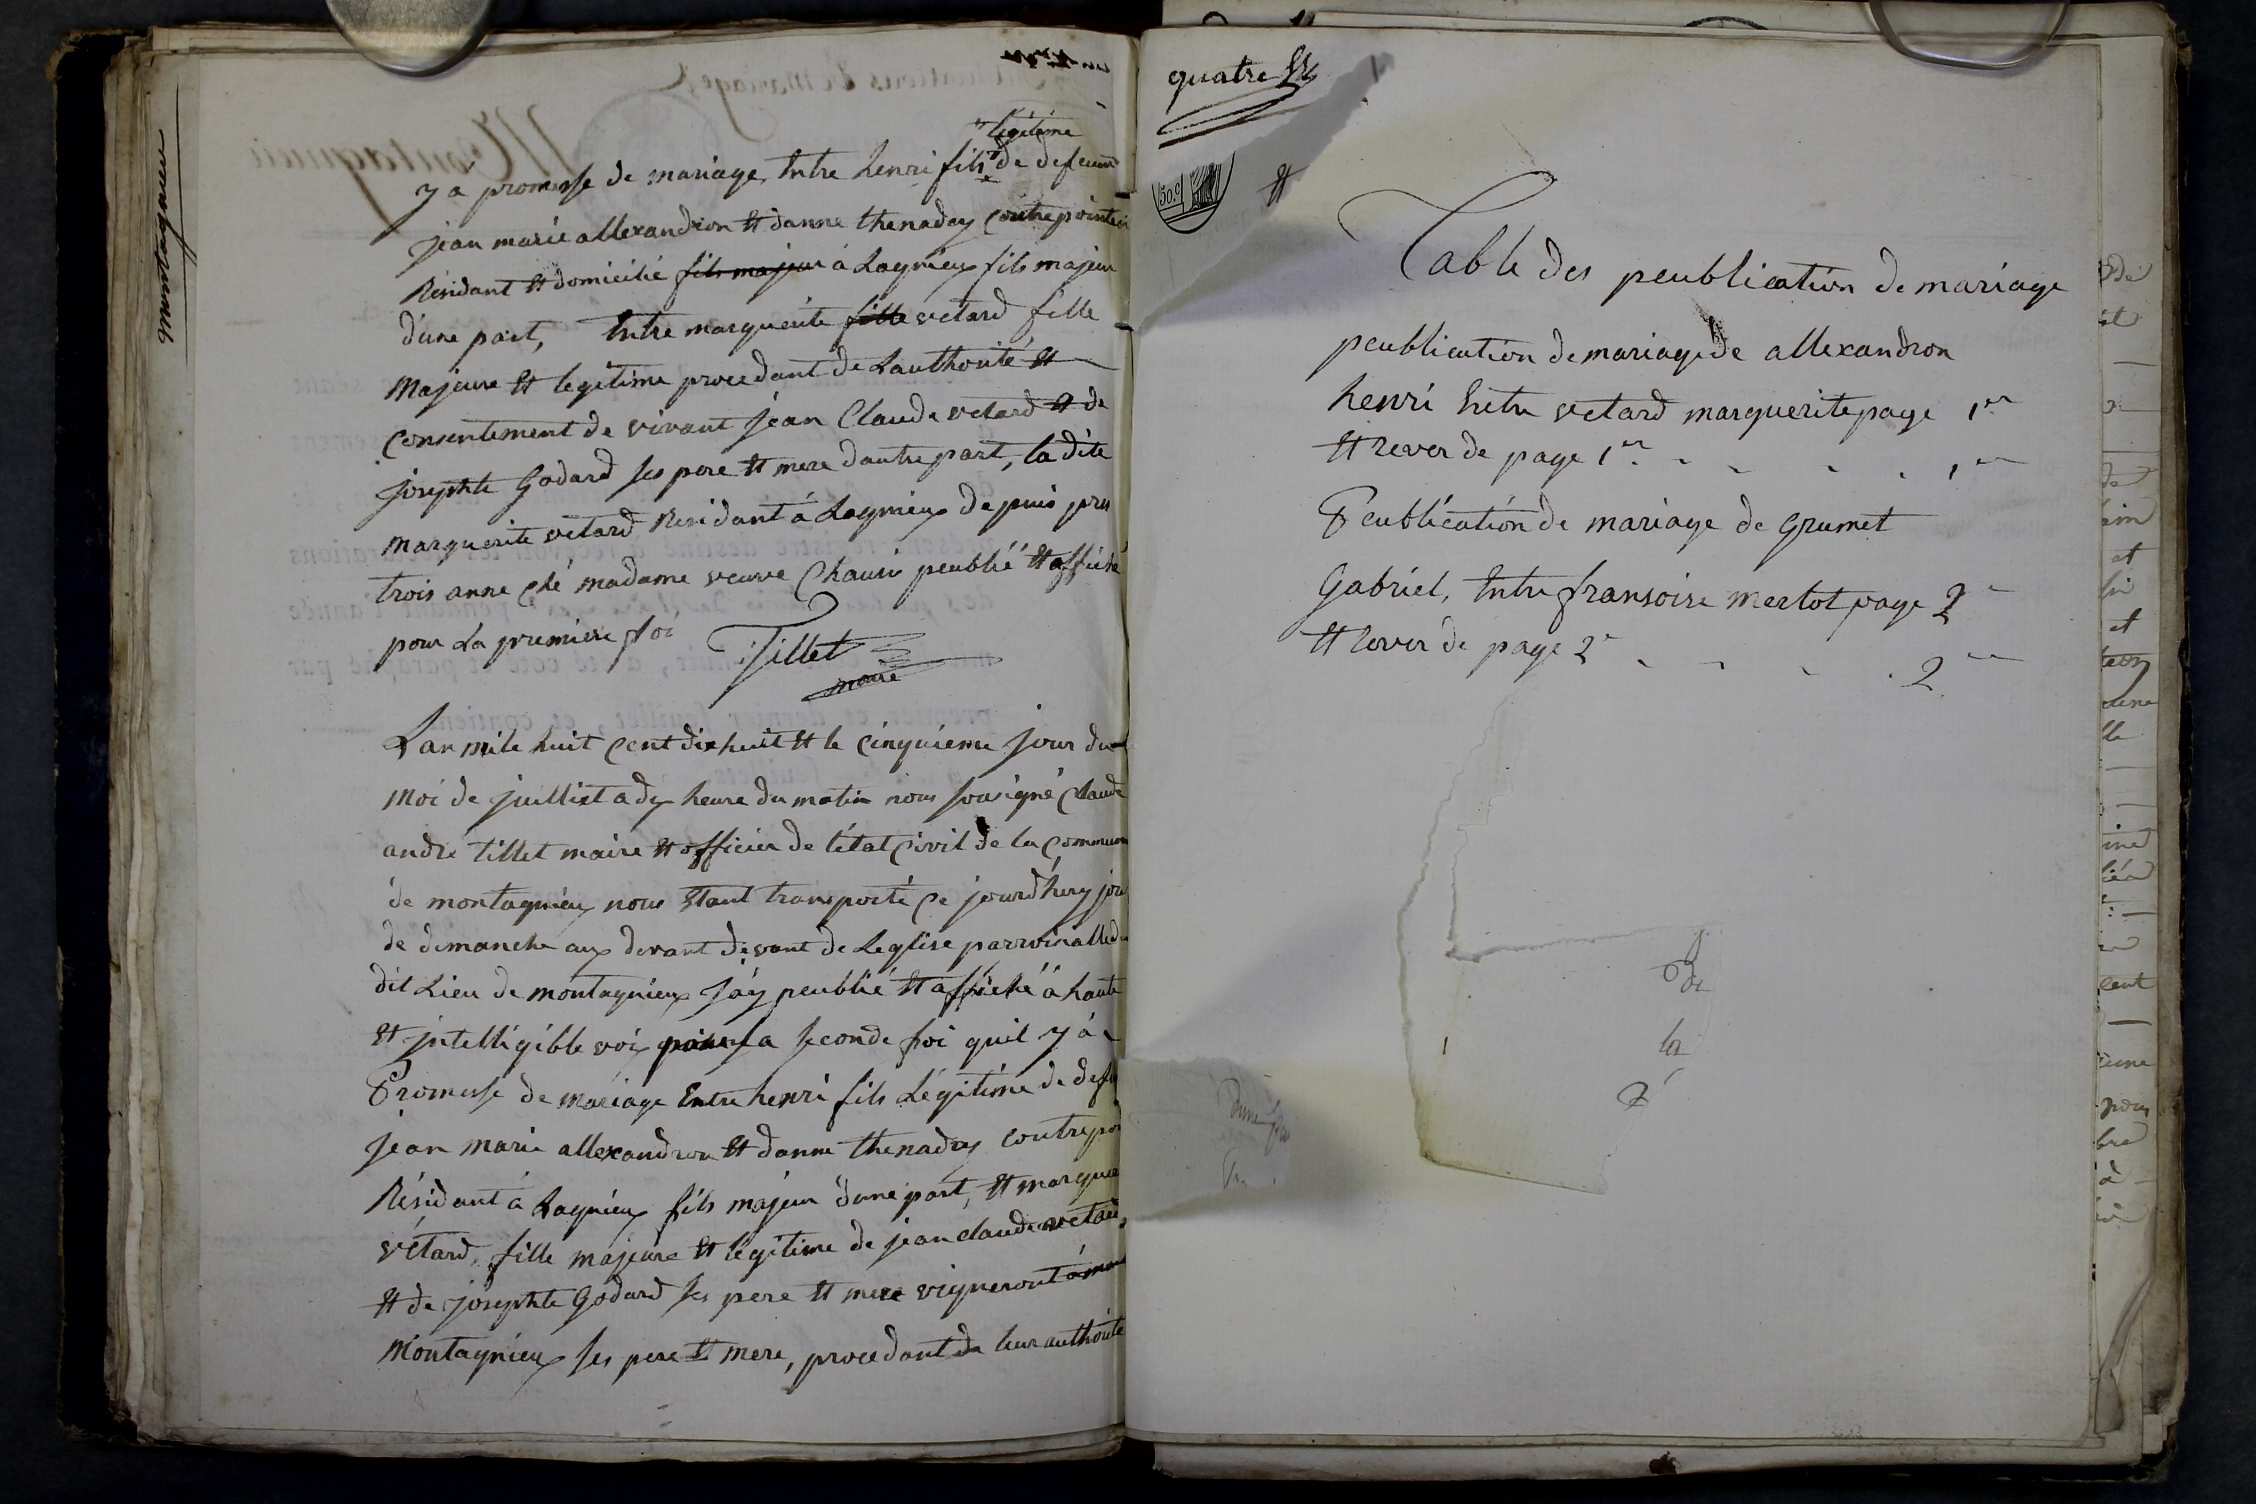 montagnieu
légitime
y a promesse de mariage, Entre henri fils de defeunt
jean marie allexandron Et danne thenadey Contrepointei
Résidant Et domicilié fils majeur á Lagnieux fils majeur
d'une part, Entre marguerite fille vetard fille
Majeure Et legitime procedant de Lauthorité Et
Consentement de vivant jean Claude vetard Et de
josephte Godard ses pere Et mere dautre part, la dite
marguerite vetard Residant á Lagnieux depuis pres
trois anne ché madame veuve peublié Et affiché
pour La premiere foi
Tillet
maire
Lan mile huit Cent dix huit Et le Cinquieme jour du
Moi de juilliet a dix heure du matin nous sousigné Claude
andré tillet maire Et officier de létat Civil de la Commune
de montagnieux nous Etant transporté Ce jourdhuy jour
de dimanche aux devant devant de Leglise parroisalle du
dit Lieu de montagnieux jáy peublié Et affiché á haute
Et jntelligible voix pour la seconde foi quil y á
Promesse de mariage Entre henri fils Légitime de defu
jean marie allexandron Et danne thenadey Contrepoi
Résidant á Lagnieux fils majeur dune part, Et margue
vétard, fille majeure Et légitime de jean claude vetard
Et de josephte Godard ses pere Et mere vigneront á
Montagnieux ses pere Et mere, procedant de leur authorité
quatre
50.c
Et
Table des peublication de mariage
peublication de mariage de allexandron
henri Entre vetard marguerite page 1er
Et rever de page 1er . . . . 1er
Peublication de mariage de Grumet
Gabriel, Entre fransoise mertot page 2
Et rever de page 2e . . . . 2
de
la